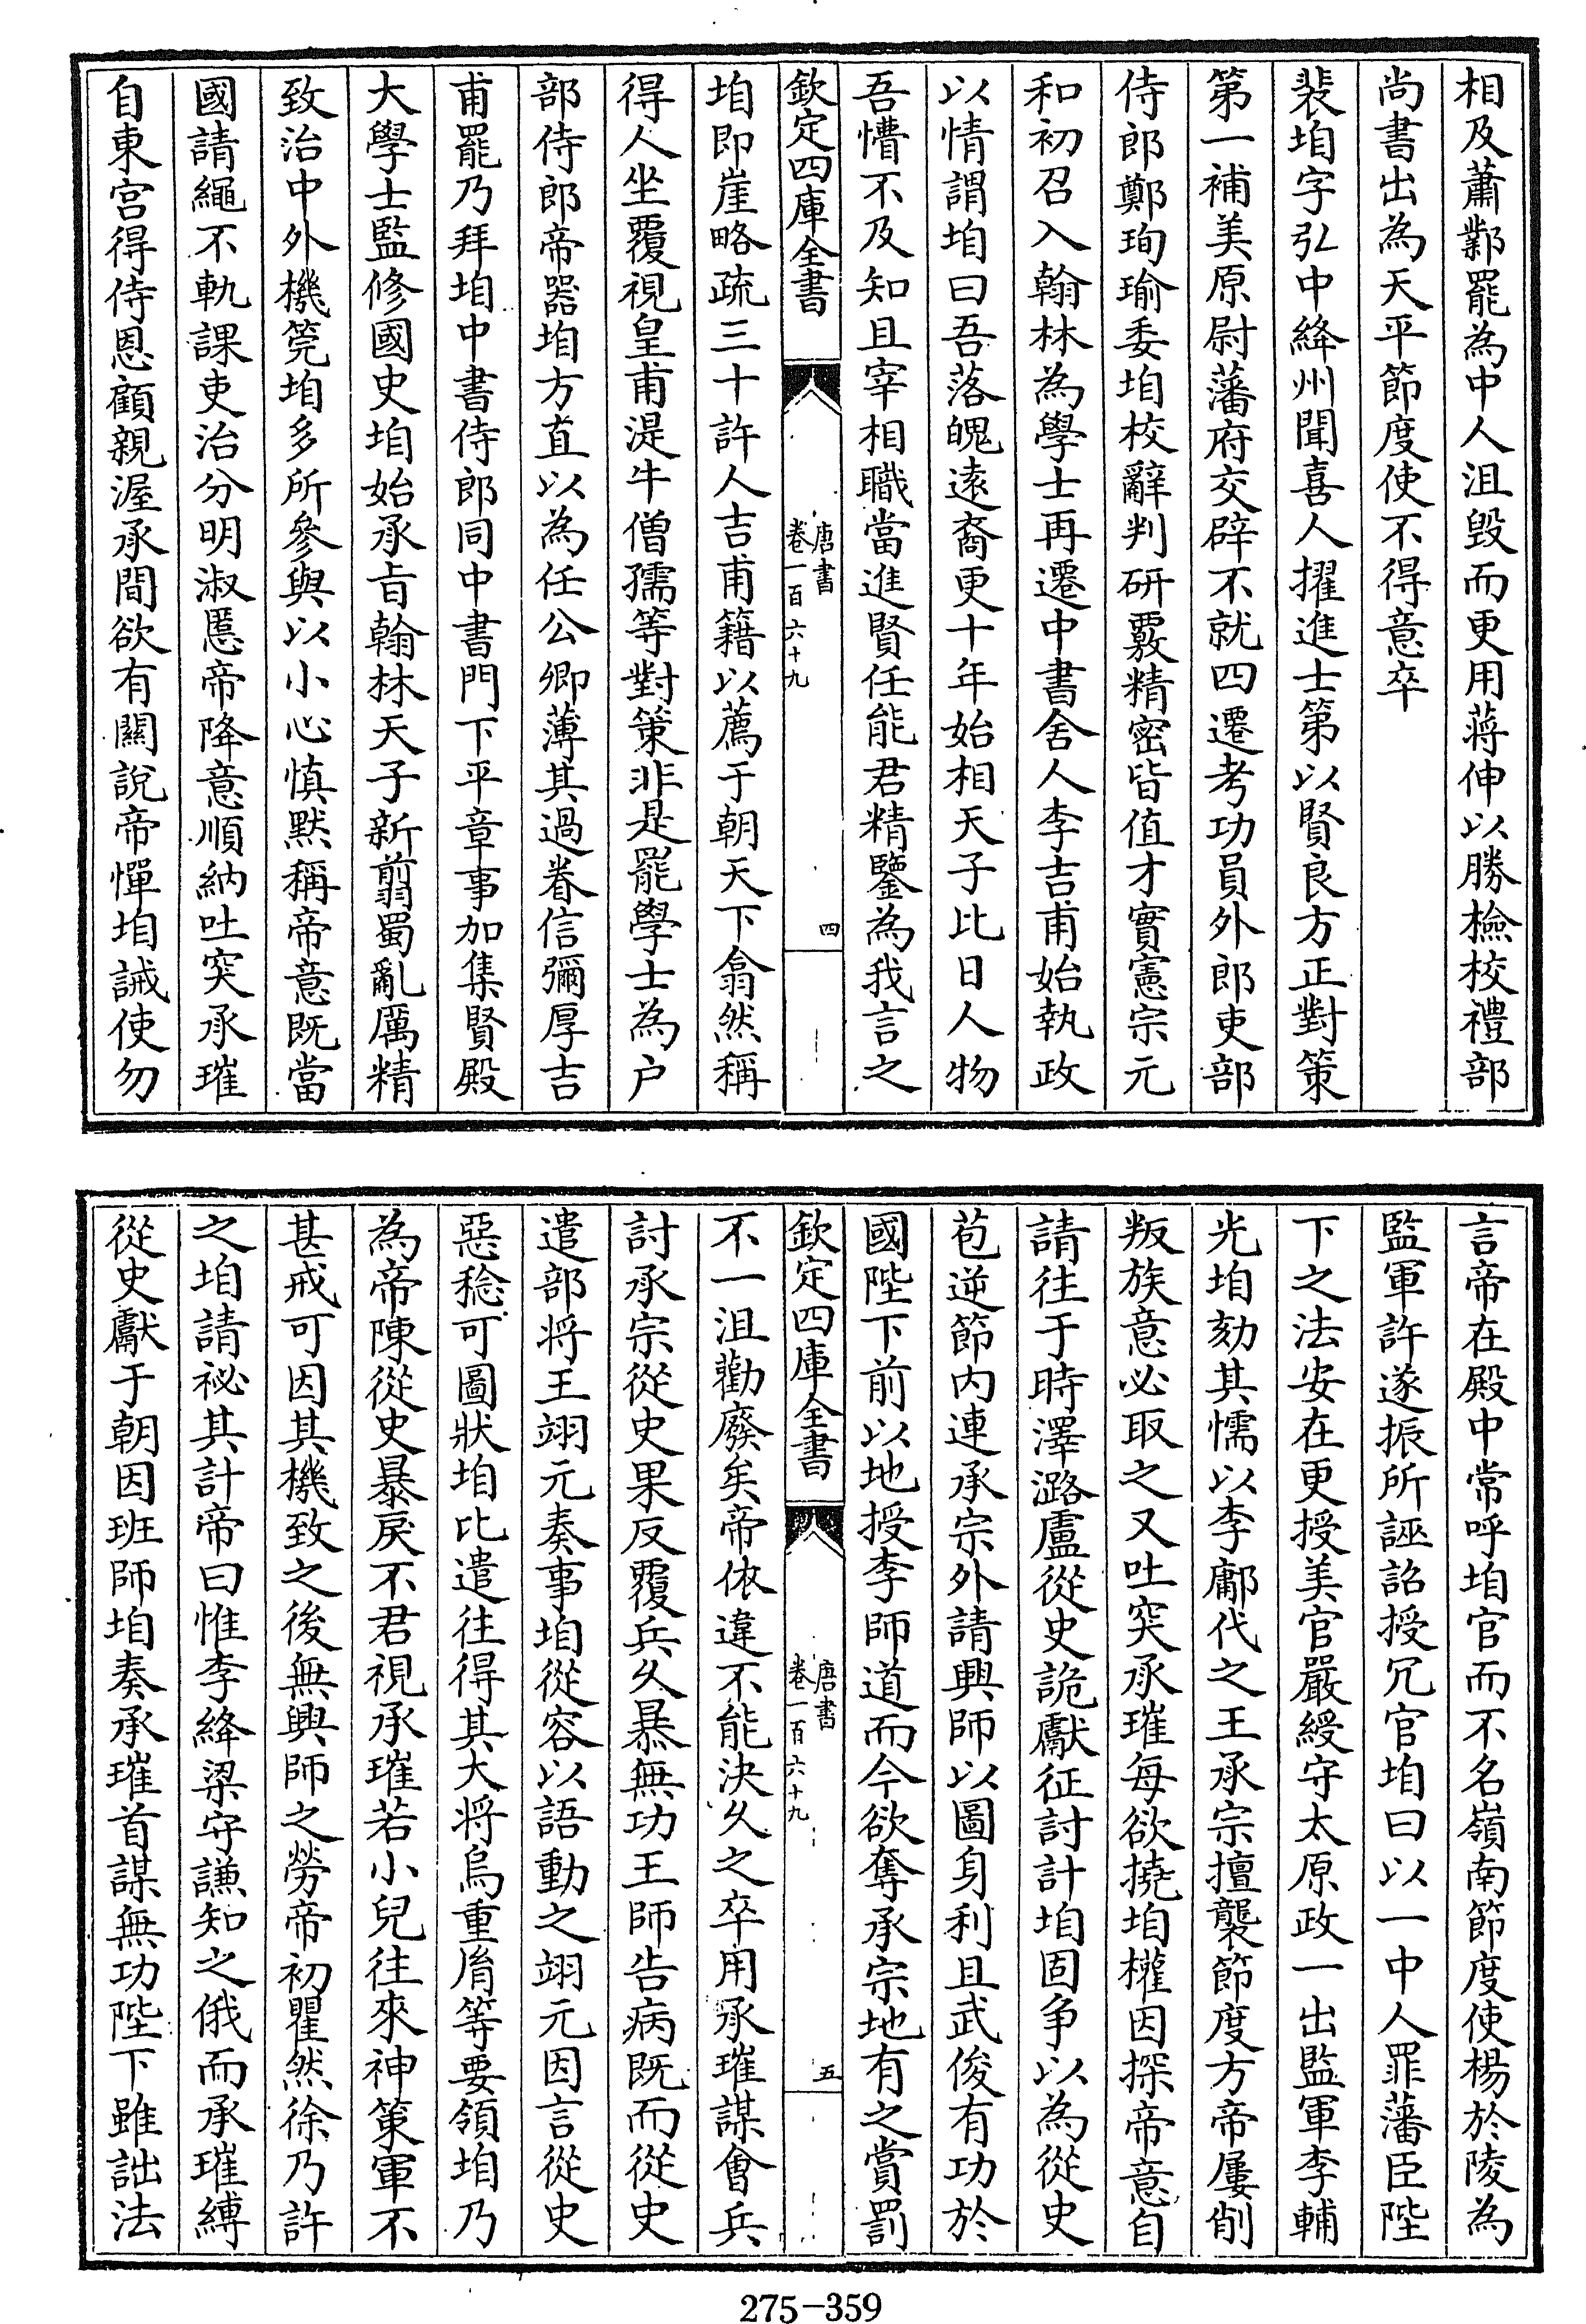 相及蕭鄴罷為中人沮毀而更用蔣伸以勝檢校禮部
尚書出為天平節度使不得意卒
裴垍字弘中絳州聞喜人擢進士第以賢良方正對策
第一補美原尉藩府交辟不就四遷考功員外郎吏部
侍郎鄭珣瑜委垍校辭判研覈精密皆值才實憲宗元
和初召入翰林為學士再遷中書舍人李吉甫始執政
以情謂垍曰吾落魄遠裔更十年始相天子比日人物
吾懵不及知且宰相職當進賢任能君精鑒為我言之
欽定四庫全書
唐書
卷一百六十九
四
垍即崖略疏三十許人吉甫籍以薦于朝天下翕然稱
得人坐覆視皇甫湜牛僧孺等對策非是罷學士為户
部侍郎帝器垍方直以為任公卿薄其過眷信彌厚吉
甫罷乃拜垍中書侍郎同中書門下平章事加集賢殿
大學士監修國史垍始承旨翰林天子新翦蜀亂厲精
致治中外機筦垍多所參與以小心慎默稱帝意既當
國請繩不軌課吏治分明淑慝帝降意順納吐突承璀
自東宫得侍恩顧親渥承間欲有關說帝憚垍誡使勿
言帝在殿中常呼垍官而不名嶺南節度使楊於陵為
監軍許遂振所誣詔授冗官垍曰以一中人罪藩臣陛
下之法安在更授美官嚴綬守太原政一出監軍李輔
光垍劾其懦以李鄘代之王承宗擅襲節度方帝屢削
叛族意必取之又吐突承璀每欲撓垍權因探帝意自
請往于時澤潞盧從史詭獻征討計垍固争以為從史
苞逆節内連承宗外請興師以圖身利且武俊有功於
國陛下前以地授李師道而今欲奪承宗地有之賞罰
欽定四庫全書
唐書
卷一百六十九
五
不一沮勸廢矣帝依違不能決久之卒用承璀謀會兵
討承宗從史果反覆兵久暴無功王師告病既而從史
遣部将王翊元奏事垍從容以語動之翊元因言從史
惡稔可圖狀垍比遣往得其大将烏重胤等要領垍乃
為帝陳從史暴戾不君視承璀若小兒往來神策軍不
甚戒可因其機致之後無興師之勞帝初瞿然徐乃許
之垍請祕其計帝曰惟李絳梁守謙知之俄而承璀縛
從史獻于朝因班師垍奏承璀首謀無功陛下雖詘法
275-359